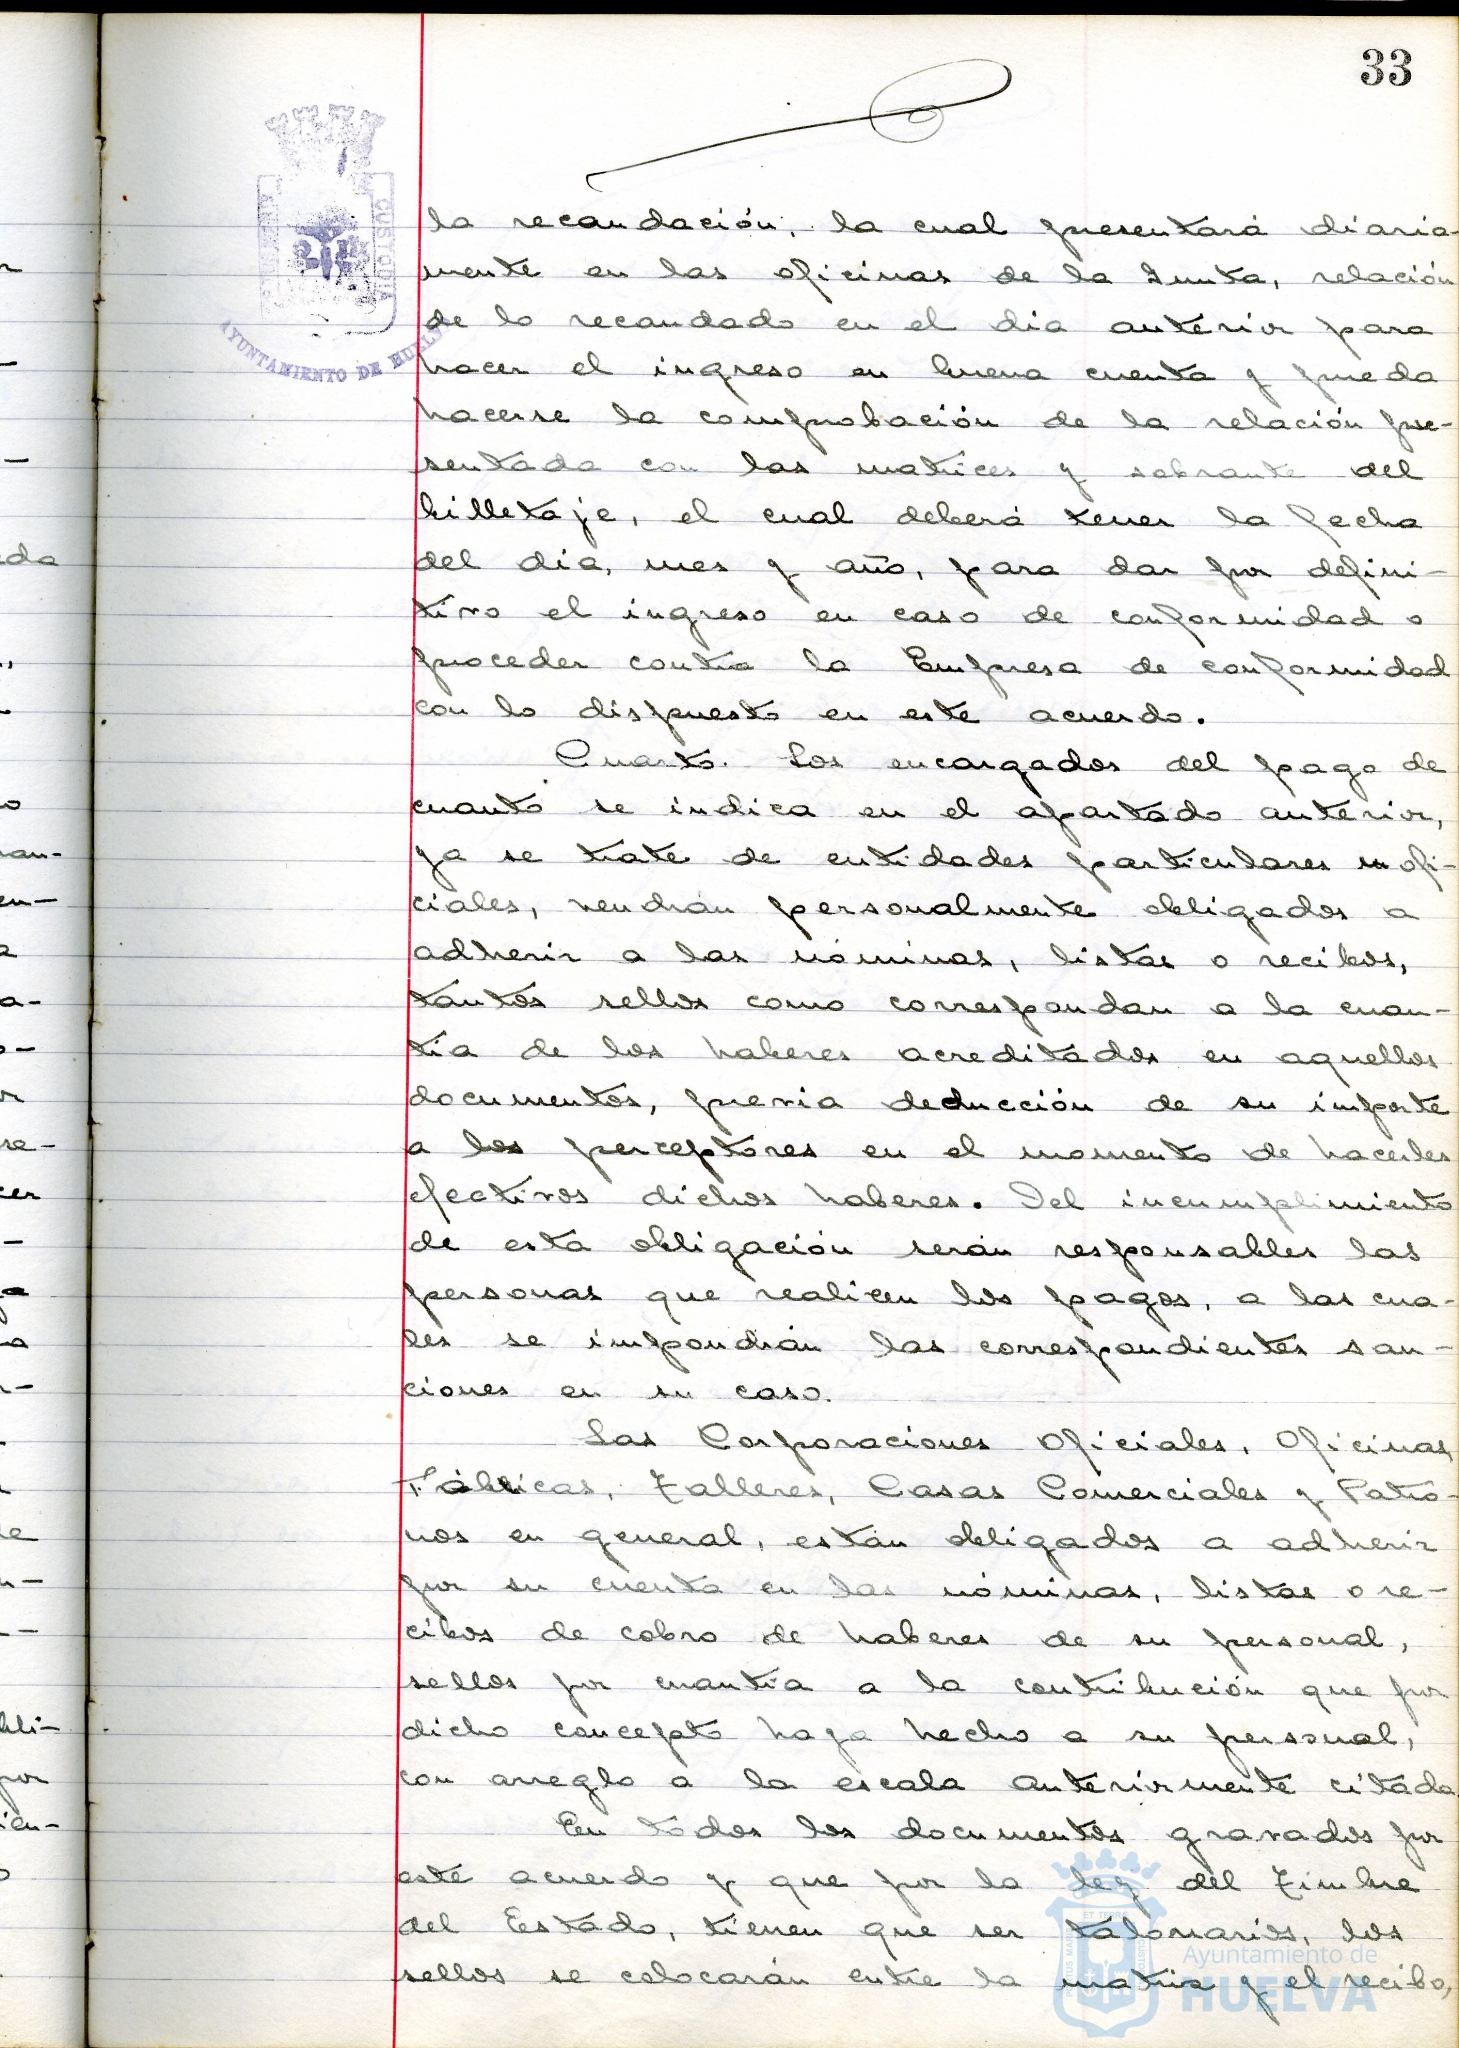 33
la recaudación, la cual presentará diaria-
mente en las oficinas de la Junta, relación
de lo recaudado en el dia anterior para
hacer el ingreso en buena cuenta y pueda
hacerse la comprobación de la relación pre-
sentada con las matrices y sobrante del
billetaje, el cual deberá tener la fecha
del dia, mes y año, para dar por defini-
tivo el ingreso en caso de conformidad o
proceder contra la Empresa de conformidad
con lo dispuesto en este acuerdo.
Cuarto. Los encargados del pago de
cuanto se indica en el apartado anterior,
ya se trate de entidades particulares u ofi-
ciales, vendrán personalmente obligados a
adherir a las nóminas, listas o recibos,
tantos sellos como correspondan a la cuan-
tia de los haberes acreditados en aquellos
documentos, previa deducción de su importe
a los perceptores en el momento de hacerles
efectivos dichos haberes. Del incumplimiento
de esta obligación serán responsables las
personas que realicen los pagos, a las cua-
les se impondrán las correspondientes san-
ciones en su caso.
Las Corporaciones Oficiales, Oficinas,
Fábricas, Talleres, Casas Comerciales y Patro-
nos en general, están obligados a adherir
por su cuenta en las nóminas, listas o re-
cibos de cobro de haberes de su personal,
sellos por cuantía a la contribución que por
dicho concepto haya hecho a su personal,
con arreglo a la escala anteriormente citada.
En todos los documentos gravados por
este acuerdo y que por la ley del Timbre
del Estado, tienen que ser talonarios, los
sellos se colocarán entre la matriz y el recibo,
CUSTODIA
AYUNTAMIENTO DE HUELVA
Ayuntamiento de
HUELVA